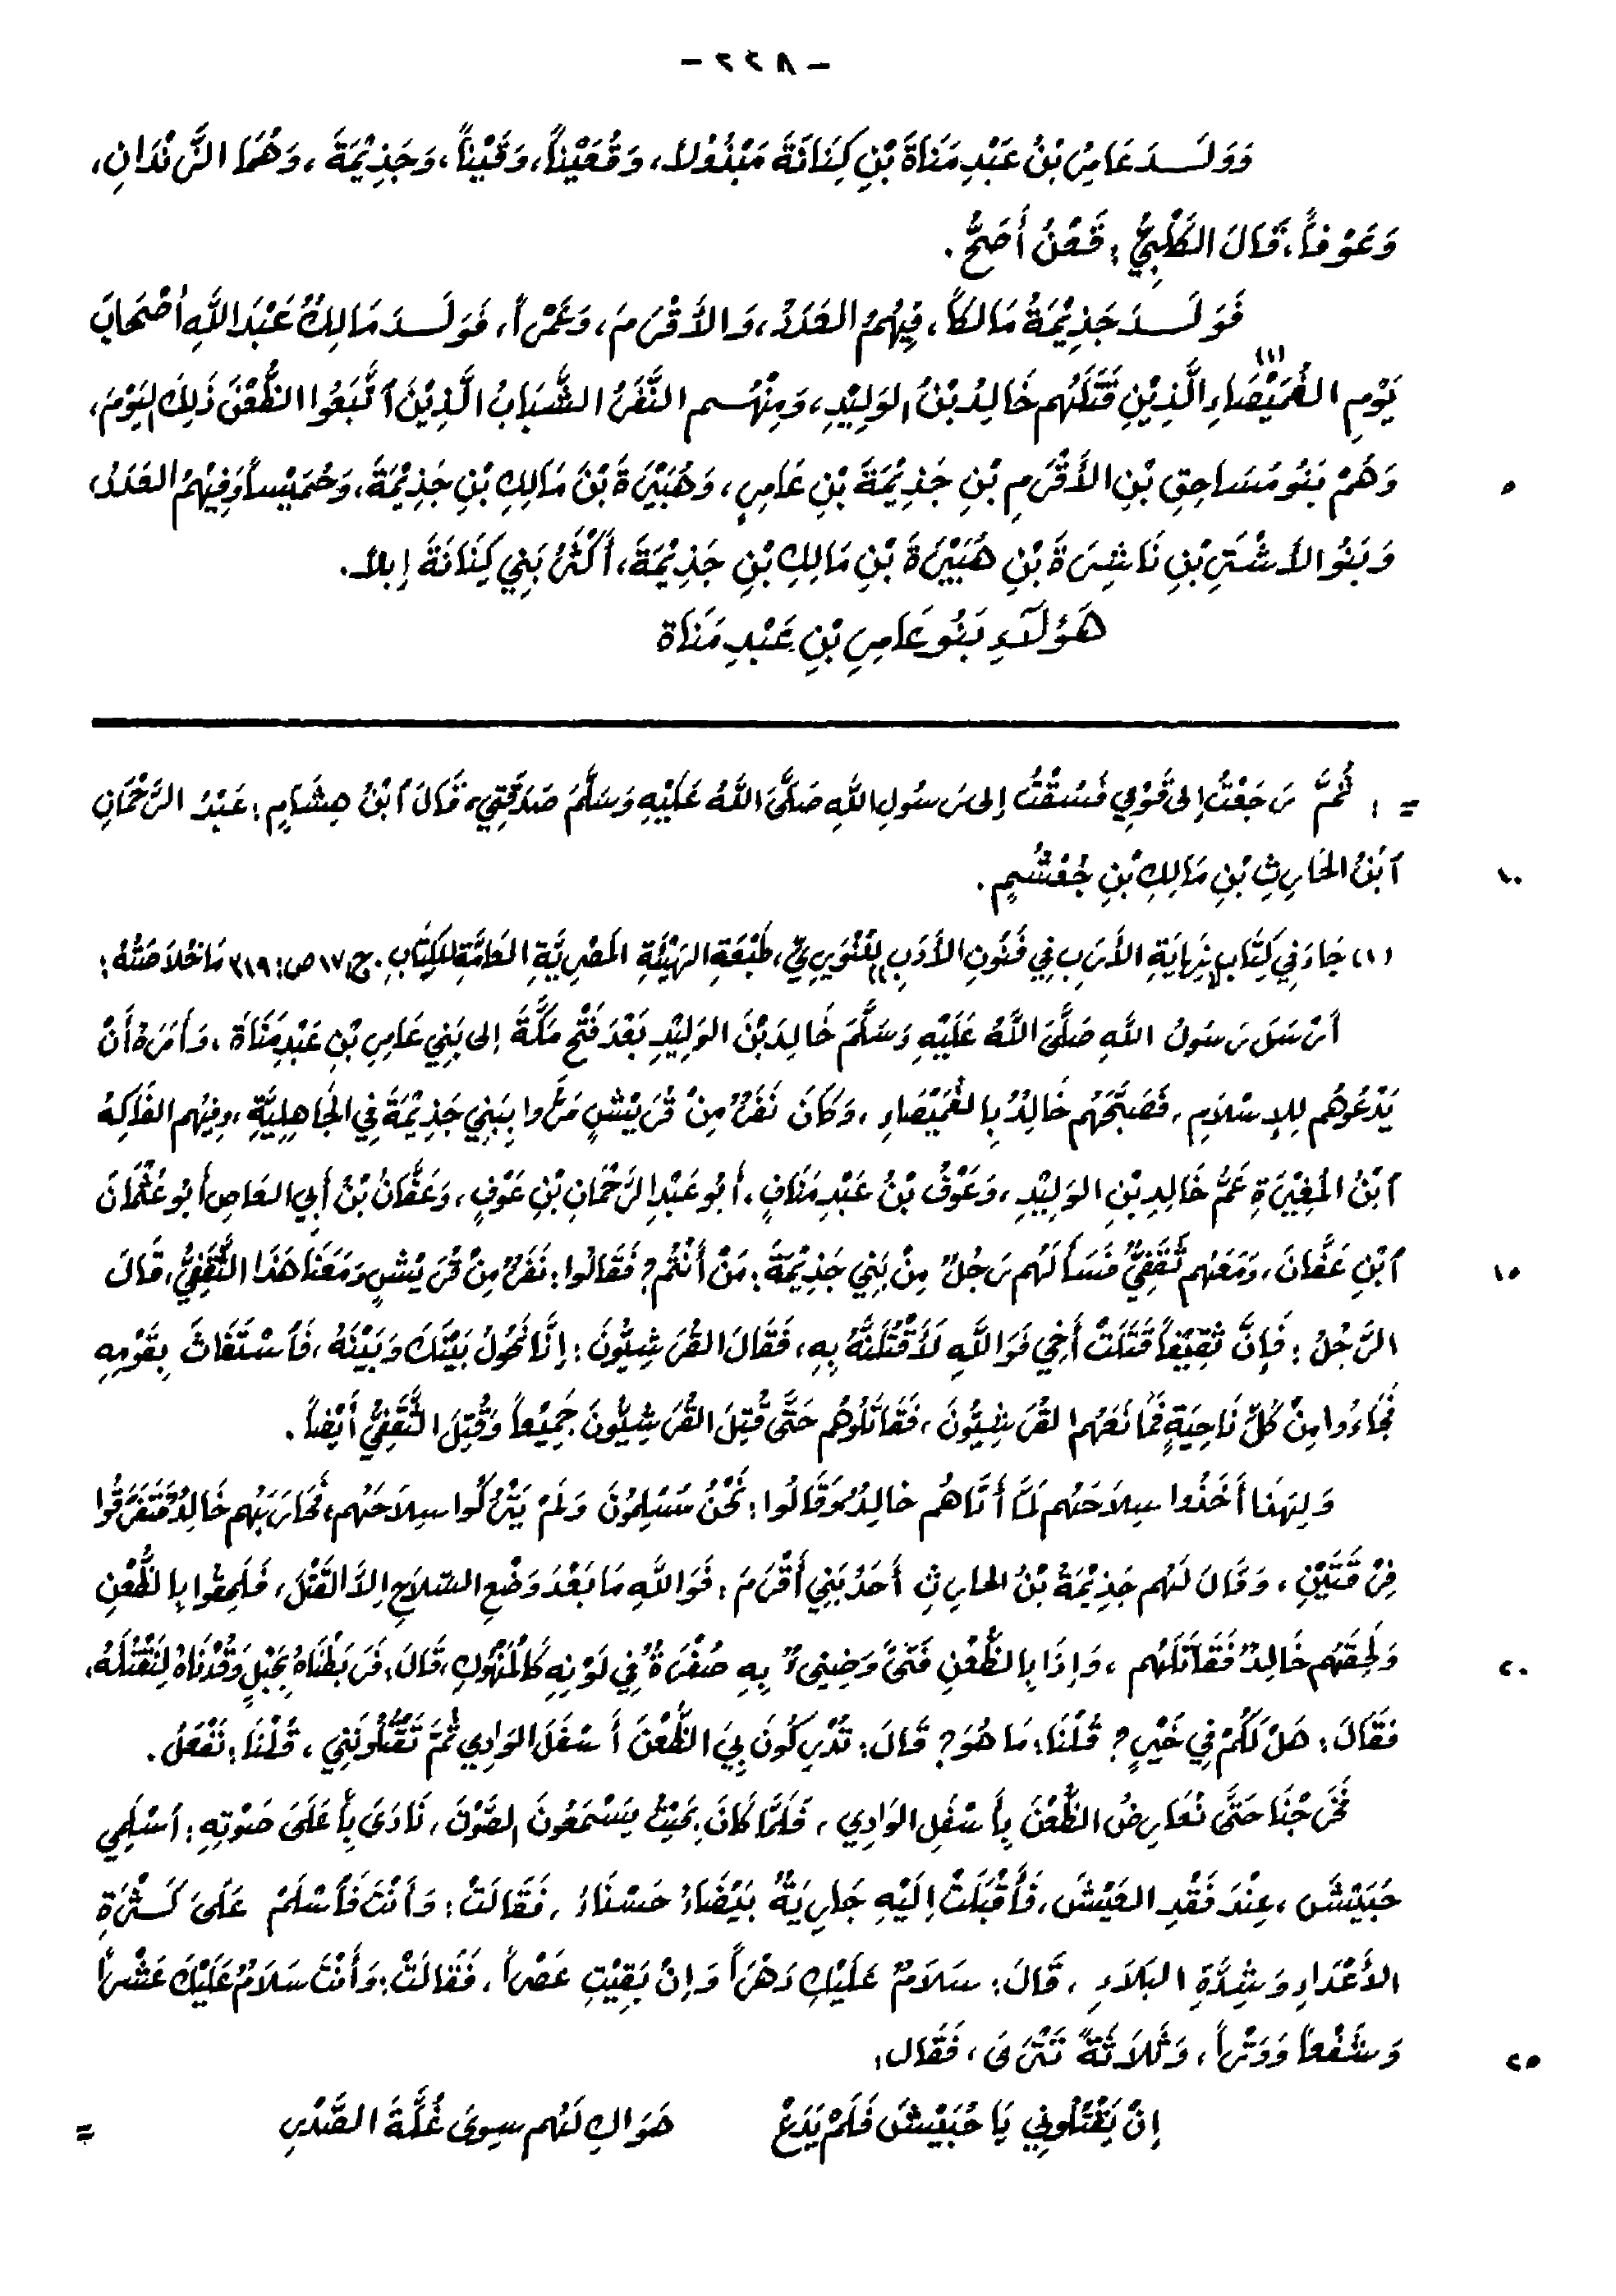 - ٢٢٨ -
وَوَلَدَ عَامِرُ بْنُ عَبْدِ مَنَاةَ بْنِ كِنَانَةَ مَبْذُولاً، وَقُعَيْناً، وَقَيْناً، وَجَذِيْمَةَ، وَهُمَا الزَّنْدَانِ،
وَعَوْفاً، قَالَ الكَلْبِيُّ: قَعْنُ أَصَحُّ.
فَوَلَدَ جَذِيْمَةُ مَالكاً، فِيْهُمُ العَدَدُ، وَالأَقْرَمَ، وَعَمْراً، فَوَلَدَ مَالِكُ عَبْدَ اللَّهِ أصْحَابَ
يَوْمِ الغُمَيْصَاءِ (١) الَّذِيْنِ قَتَلَهُم خَالِدُ بْنُ الوَلِيْدِ، وَمِنْهُم النَّفَرُ الشَّبَابُ الَّذِيْنَ ٱتَّبَعُوا الظُّعْنَ ذَلِكَ اليَوْمَ،
وَهُمْ بَنُو مُسَاحِقِ بْنِ الأَقْرَمِ بْنِ جَذِيْمَةَ بْنِ عَامِرٍ، وَهُبَيْرَةَ بْنَ مَالِكِ بْنِ جَذِيْمَةَ، وَحُمَيْساً وَفِيْهُمُ العَدَدُ، ٥
وَبَنُو الأَشْتَرِ بْنِ نَاشِرَةَ بْنِ هُبَيْرَةَ بْنِ مَالِكِ بْنِ جَذِيْمَةَ، أَكْثَرُ بَنِي كِنَانَةَ إبلاً.
هَؤُلَاءِ بَنُو عَامِرِ بْنِ عَبْدِ مَنَاة
= : ثُمَّ رَجَعْتُ إلى قَوْمِي فَسُقْتُ إلى رَسُولِ اللهِ صَلَّى اللَّهُ عَلَيْهِ وَسَلَّمَ صَدَقَتِي، قَالَ ٱبْنُ هِشَامٍ: عَبْدُ الرَّحْمَانِ
ٱبْنُ الحَارِثِ بْنِ مَالِكِ بْنِ جُعْشُمٍ. ١٠
(١) جَاءَ فِي كِتَابِ «نِهايَةِ الأَرَبِ فِي فُنُونِ الأَدَبِ» لِلنُّوَيرِيِّ، طَبْعَةِ الهَيْئَةِ المَصْرِيَّةِ العَامَّةِ لِلكِتَابِ. ج: ١٧ ص: ٣١٩ مَا خُلَاصَتُهُ:
أَرْسَلَ رَسُولُ اللَّهِ صَلَّى اللَّهُ عَلَيْهِ وَسَلَّمَ خَالِدَ بْنَ الوَلِيْدِ بَعْدَ فَتْحِ مَكَّةَ إلى بَنِي عَامِرِ بْنِ عَبْدِ مَنَاةَ، وَأَمَرَهُ أَنْ
يَدْعُوَهُم لِلإِسْلَامِ، فَصَبَّحَهُم خَالِدُ بِالغُمَيْصَاءِ، وَكَانَ نَفَرٌ مِنْ قُرَيْشٍ مَرُّوا بِبَنِي جَذِيْمَةَ فِي الجَاهِلِيَّةِ، وفِيْهُم الفَاكِهُ
ٱبْنُ المُغِيْرَةِ عَمُّ خَالِدِ بْنِ الوَلِيْدِ، وَعَوْفُ بْنُ عَبْدِ مَنَافٍ، أَبُو عَبْدِ الرَّحْمَانِ بْنِ عَوْفٍ، وَعَفَّانُ بْنُ أَبِي العَاصِ أَبُو عُثْمَانَ
ٱبْنِ عَفَّانَ، وَمَعَهُم ثَقَفِيٌّ فَسَأَلَهُم رَجُلٌ مِنْ بَنِي جَذِيْمَةَ: مَنْ أَنْتُم؟ فَقَالُوا: نَفَرٌ مِنْ قُرَيْشٍ وَمَعَنَا هَذَا الثَّقَفِيُّ، قَالَ ١٥
الرَّجُلُ: فَإِنَّ ثَقِيْفاً قَتَلَتْ أَخِي فَوَاللَّهِ لَأَقْتُلَنَّهُ بِهِ، فَقَالَ القُرَشِيُّونَ: إنَّا نَحُولُ بَيْنَكَ وَبَيْنَهُ، فَٱسْتَغَاثَ بِقَوْمِهِ
فَجَاءُوا مِنْ كُلِّ نَاحِيَةٍ فَمَانَعَهُم القُرَشِيُّونَ، فَقَاتَلُوهُم حَتَّى قُتِلَ القُرَشِيُّونَ جَمِيْعاً وَقُتِلَ الثَّقَفِيُّ أَيْضاً.
وَلِهَذا أَخَذُوا سِلَاحَهُم لَمَّا أَتَاهُم خالِدُ وَقَالُوا: نَحْنُ مُسْلِمُونَ وَلَمْ يَتْرُكُوا سِلَاحَهُم، فَحَارَبَهُم خَالِدُ فَتَفَرَّقُوا
فِرْقَتَيْنِ، وَقَالَ لَهُم جَذِيْمَةُ بْنُ الحارِثِ أَحَدُ بَنِي أَقْرَمَ: فَوَاللَّهِ مَا بَعْدَ وَضْعِ السِّلاحِ إلاَّ القَتْلَ، فَلَحِقُوا بِالظُّعْنِ
وَلَحِقَهُم خَالِدٌ فَقَاتَلَهُم، وَإِذَا بِالظُّعْنِ فَتىً وَضِيىءٌ بِهِ صُفْرَةٌ فِي لَوْنِهِ كَالْمَنْهُوكِ، قَالَ: فَرَبَطْنَاهُ بِحَبْلٍ وَقُدْنَاهُ لِنَقْتُلَهُ، ٢٠
فَقَالَ: هَلْ لَكُمْ فِي خَيْرٍ؟ قُلْنَا: مَا هُوَ؟ قَالَ: تُدْرِكُونَ بِيَ الظُّعْنَ أَسْفَلَ الوَادِي ثُمَّ تَقْتُلُونَنِي، قُلْنَا: نَفْعَلُ.
فَخَرَجْنَا حَتَّى نُعَارِضُ الظُّعْنَ بِأَسْفَلِ الوَادِي، فَلَمَّا كَانَ بِحَيْثُ يَسْمَعُونَ الصَّوْتَ، نَادَى بِأَعْلَى صَوْتِهِ: أَسْلِمِي
حُبَيْشُ، عِنْدَ فَقْدِ العَيْشِ، فَأَقْبَلَتْ إِلَيْهِ جَارِيَةٌ بَيْضَاءُ حَسْنَاءُ، فَقَالَتْ: وَأَنْتَ فَأَسْلَمْ عَلَى كَثْرَةِ
الأَعْدَاءِ وَشِدَّةِ البَلَاءِ، قَالَ: سَلَامٌ عَلَيْكِ دَهْراً وَإنْ بَقِيْتِ عَصْراً، فَقَالَتْ: وَأَنْتَ سَلَامٌ عَلَيْكَ عَشْراً
وَشَفْعاً وَوَتْراً، وَثَلَاثَةً تَتْرَى، فَقَال: ٢٥
إنْ يَقْتُلُونِي يَا حُبَيْشُ فَلَمْ يَدَعْ هَوَاكِ لَهُم سِوَى غُلَّةَ الصَّدْرِ =